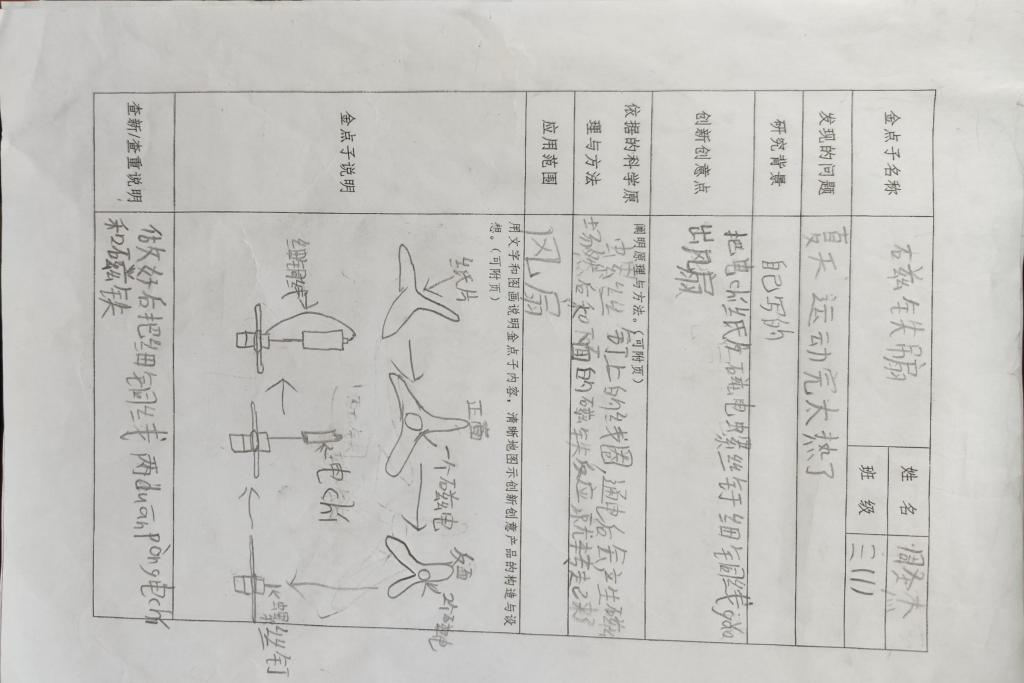 金点子名称
磁铁风扇
姓 名
班 级
三(1)
发现的问题
夏天运动完太热了
研究背景
自己写的
创新创意点
把电池纸片磁电螺丝钉细铜线
出风扇
依据的科学原
理与方法
阐明原理与方法。(可附页)
螺丝钉上的线圈通电后会产生磁
场然后和下面的磁铁反应就转起来了
应用范围
风扇
金点子说明
用文字和图画说明金点子内容，清晰地图示创新创意产品的构造与设
想。(可附页)
纸片
正面
一个磁电
反面
2个磁电
细铜线
电chí
螺丝钉
查新/查重说明
做好后把细铜线两duān pèng电chí
和磁铁